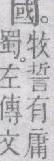 國。牧誓有庸
蜀。左傳文